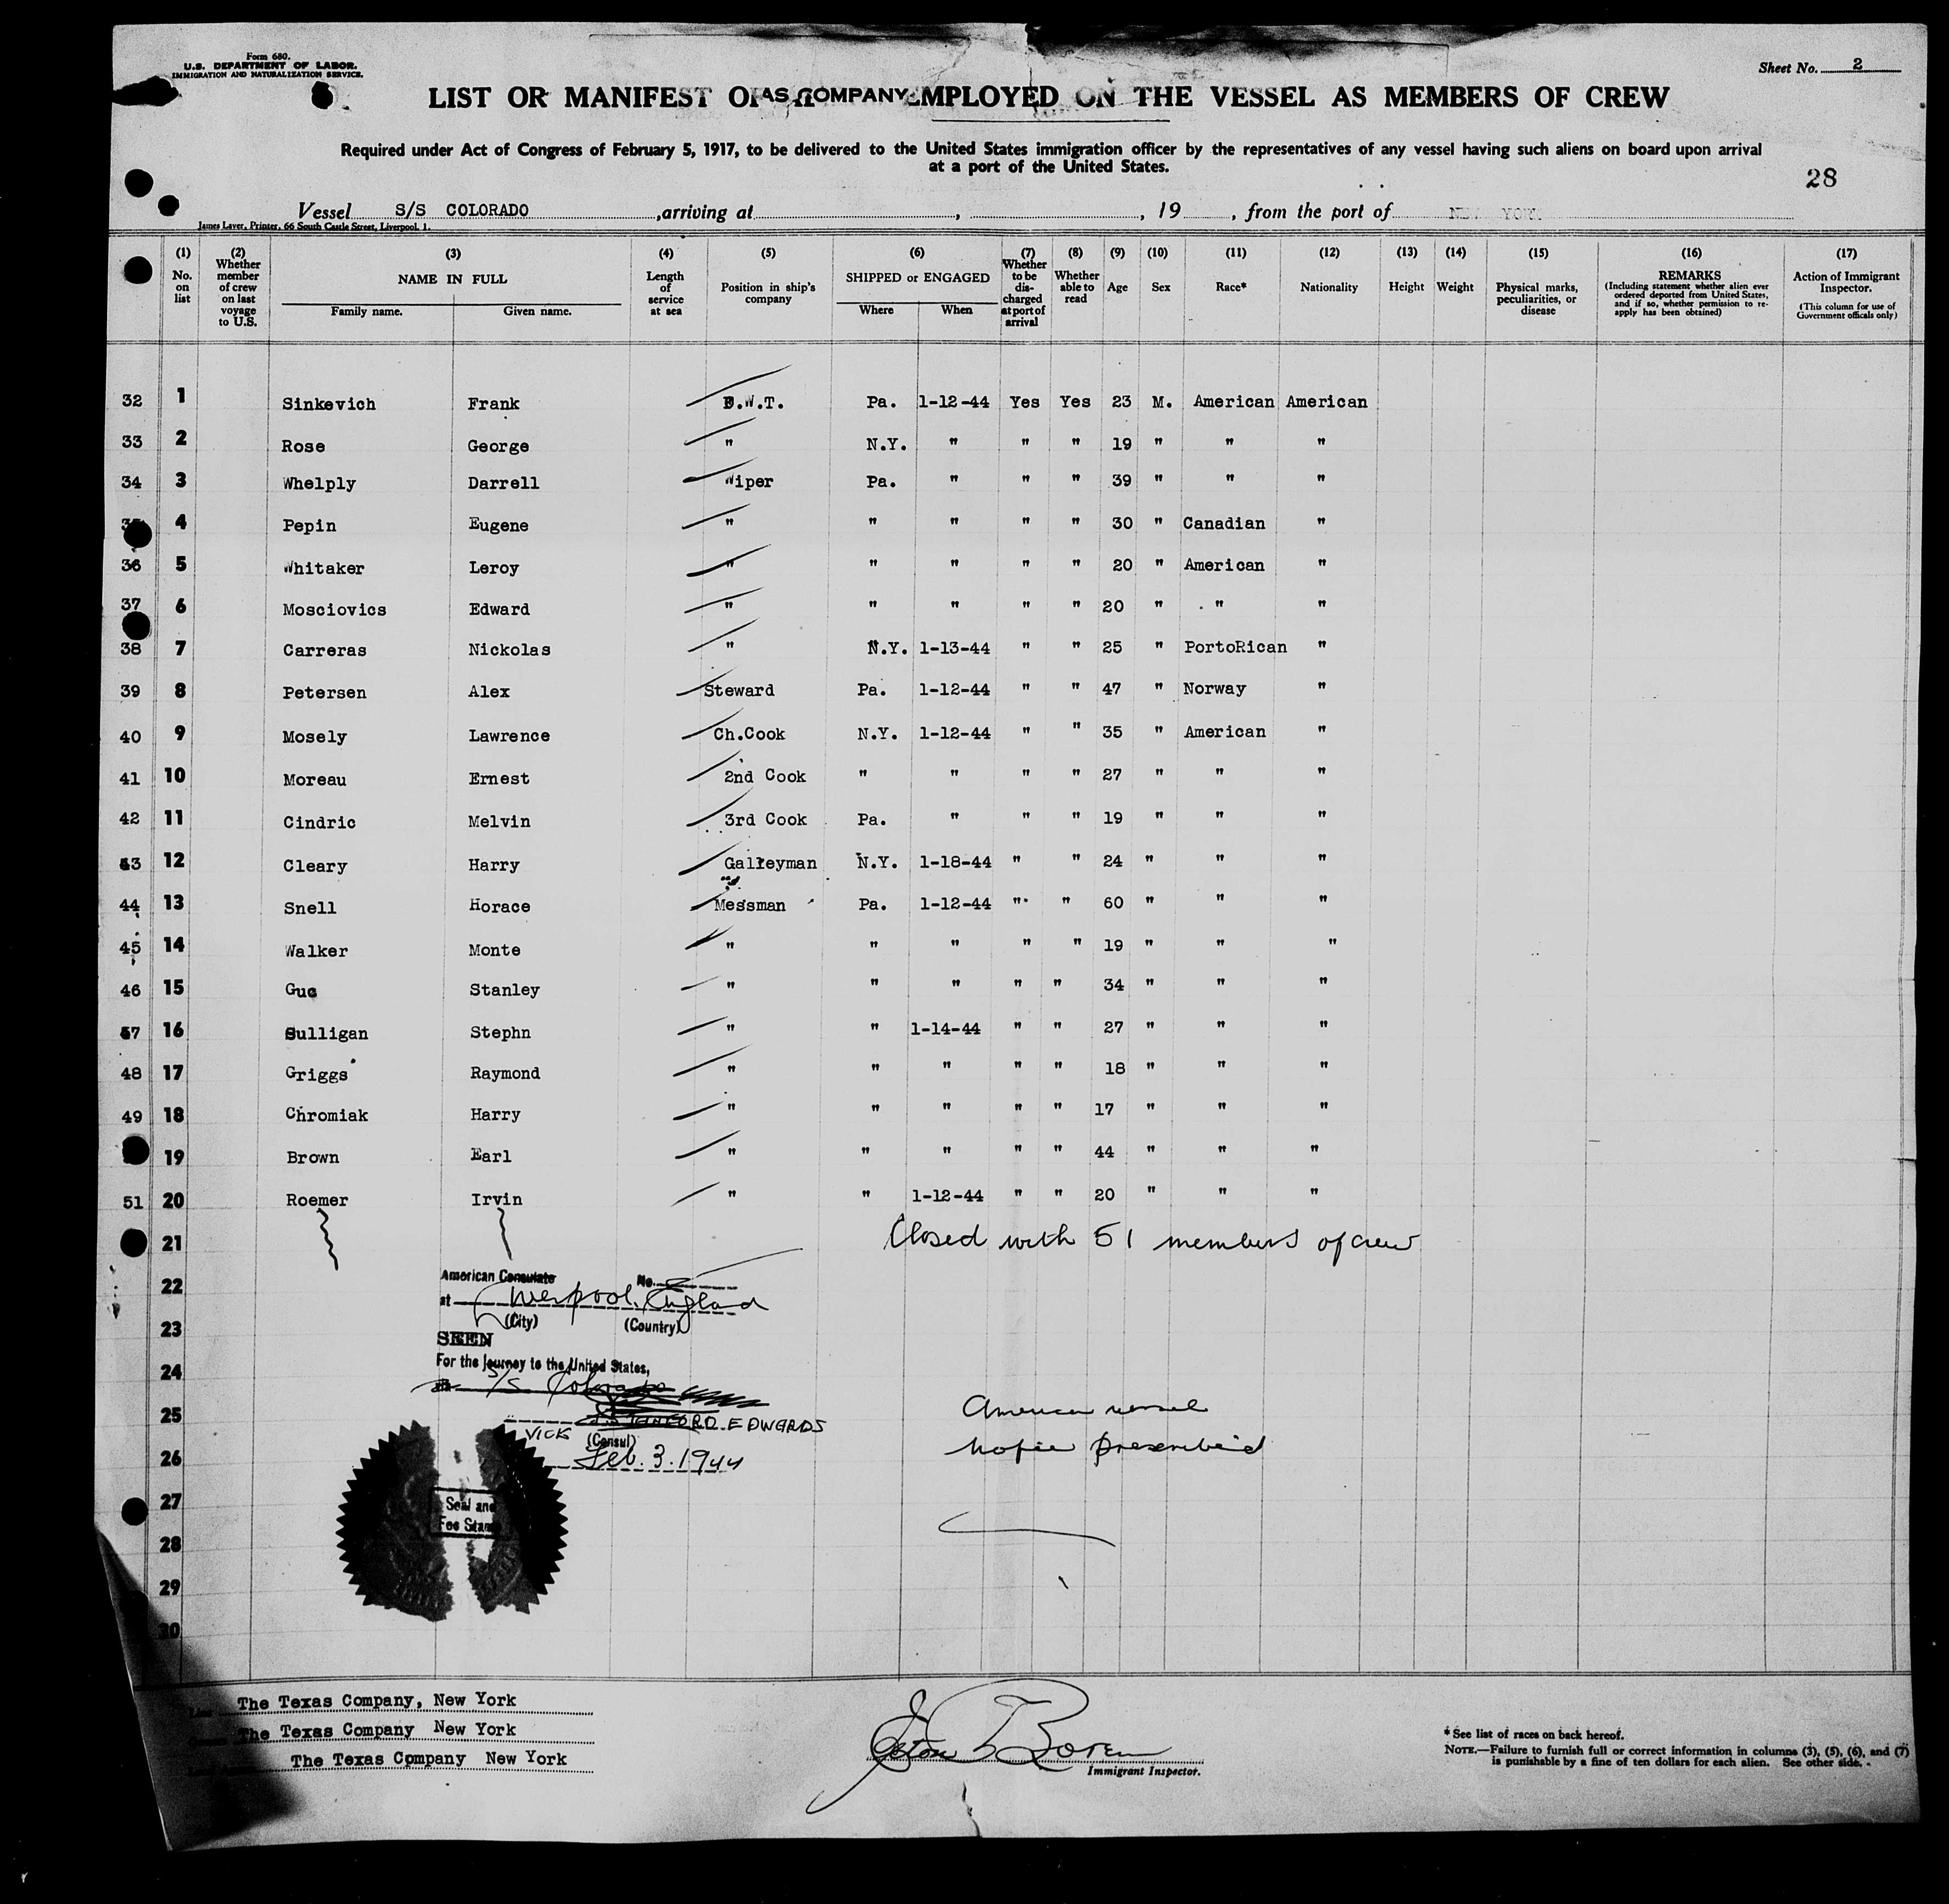 Form 680.
U.S. DEPARTMENT OF LABOR.
IMMIGRATION AND NATURALIZATION SERVICE.
Sheet No. 2
LIST OR MANIFEST OF AS COMPANY EMPLOYED ON THE VESSEL AS MEMBERS OF CREW
Required under Act of Congress of February 5, 1917, to be delivered to the United States immigration officer by the representatives of any vessel having such aliens on board upon arrival
at a port of the United States.
28
Vessel S/S COLORADO ,arriving at , , 19 , from the port of NEW YORK
James Laver, Printer, 66 South Castle Street, Liverpool. 1.
(1) No. on list
(2) Whether member of crew on last voyage to U.S.
(3) NAME IN FULL Family name. Given name.
(4) Length of service at sea
(5) Position in ship's company
(6) SHIPPED or ENGAGED Where When
(7) Whether to be discharged at port of arrival
(8) Whether able to read
(9) Age
(10) Sex
(11) Race*
(12) Nationality
(13) Height
(14) Weight
(15) Physical marks, peculiarities, or disease
(16) REMARKS (Including statement whether alien ever ordered deported from United States, and if so, whether permission to re-apply has been obtained)
(17) Action of Immigrant Inspector. (This column for use of Government officials only)
32 1 Sinkevich Frank F.W.T. Pa. 1-12-44 Yes Yes 23 M. American American
33 2 Rose George " N.Y. " " " 19 " " "
34 3 Whelply Darrell Wiper Pa. " " " 39 " " "
35 4 Pepin Eugene " " " " " 30 " Canadian "
36 5 Whitaker Leroy " " " " " 20 " American "
37 6 Mosciovics Edward " " " " " 20 " " "
38 7 Carreras Nickolas " N.Y. 1-13-44 " " 25 " PortoRican "
39 8 Petersen Alex Steward Pa. 1-12-44 " " 47 " Norway "
40 9 Mosely Lawrence Ch.Cook N.Y. 1-12-44 " " 35 " American "
41 10 Moreau Ernest 2nd Cook " " " " 27 " " "
42 11 Cindric Melvin 3rd Cook Pa. " " " 19 " " "
43 12 Cleary Harry Galleyman N.Y. 1-18-44 " " 24 " " "
44 13 Snell Horace Messman Pa. 1-12-44 " " 60 " " "
45 14 Walker Monte " " " " " 19 " " "
46 15 Guc Stanley " " " " " 34 " " "
47 16 Sulligan Stephn " " 1-14-44 " " 27 " " "
48 17 Griggs Raymond " " " " " 18 " " "
49 18 Chromiak Harry " " " " " 17 " " "
19 Brown Earl " " " " " 44 " " "
51 20 Roemer Irvin " " 1-12-44 " " 20 " " "
21 Closed with 51 members of crew
22 American Consulate No.
at Liverpool, England
23 (City) (Country)
SEEN
24 For the journey to the United States,
S/S Colorado
25 EDWARDS
American vessel
VICE (Consul)
26 Feb. 3. 1944
No fee prescribed
27 Seal and
Fee Stamp
28
29
30
The Texas Company, New York
The Texas Company New York
The Texas Company New York
Immigrant Inspector.
* See list of races on back hereof.
NOTE.—Failure to furnish full or correct information in columns (3), (5), (6), and (7)
is punishable by a fine of ten dollars for each alien. See other side.